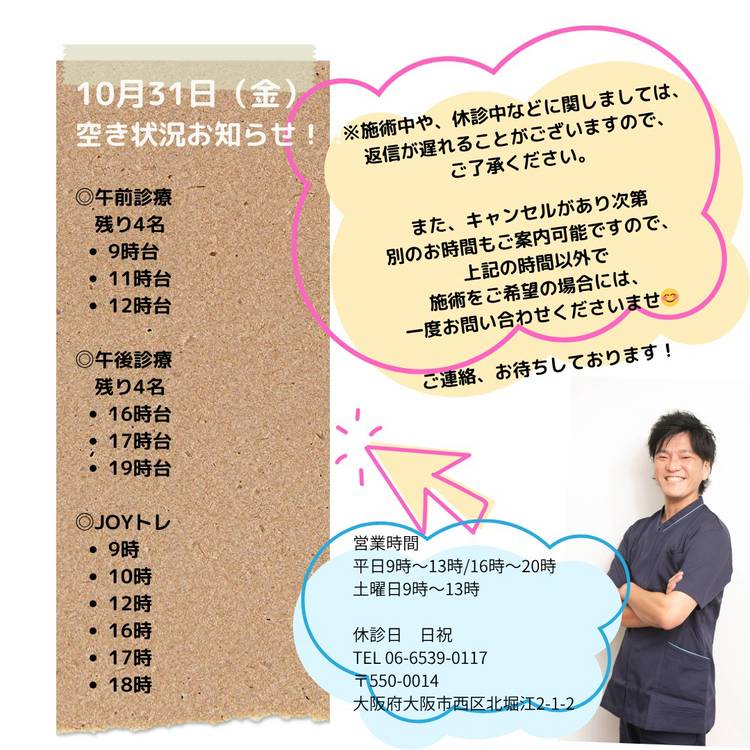 10月31日（金）
空き状況お知らせ！
◎午前診療
残り4名
• 9時台
• 11時台
• 12時台
◎午後診療
残り4名
• 16時台
• 17時台
• 19時台
◎JOYトレ
• 9時
• 10時
• 12時
• 16時
• 17時
• 18時
※施術中や、休診中などに関しましては、
返信が遅れることがございますので、
ご了承ください。
また、キャンセルがあり次第
別のお時間もご案内可能ですので、
上記の時間以外で
施術をご希望の場合には、
一度お問い合わせくださいませ😊
ご連絡、お待ちしております！
営業時間
平日9時〜13時/16時〜20時
土曜日9時〜13時
休診日　日祝
TEL 06-6539-0117
〒550-0014
大阪府大阪市西区北堀江2-1-2